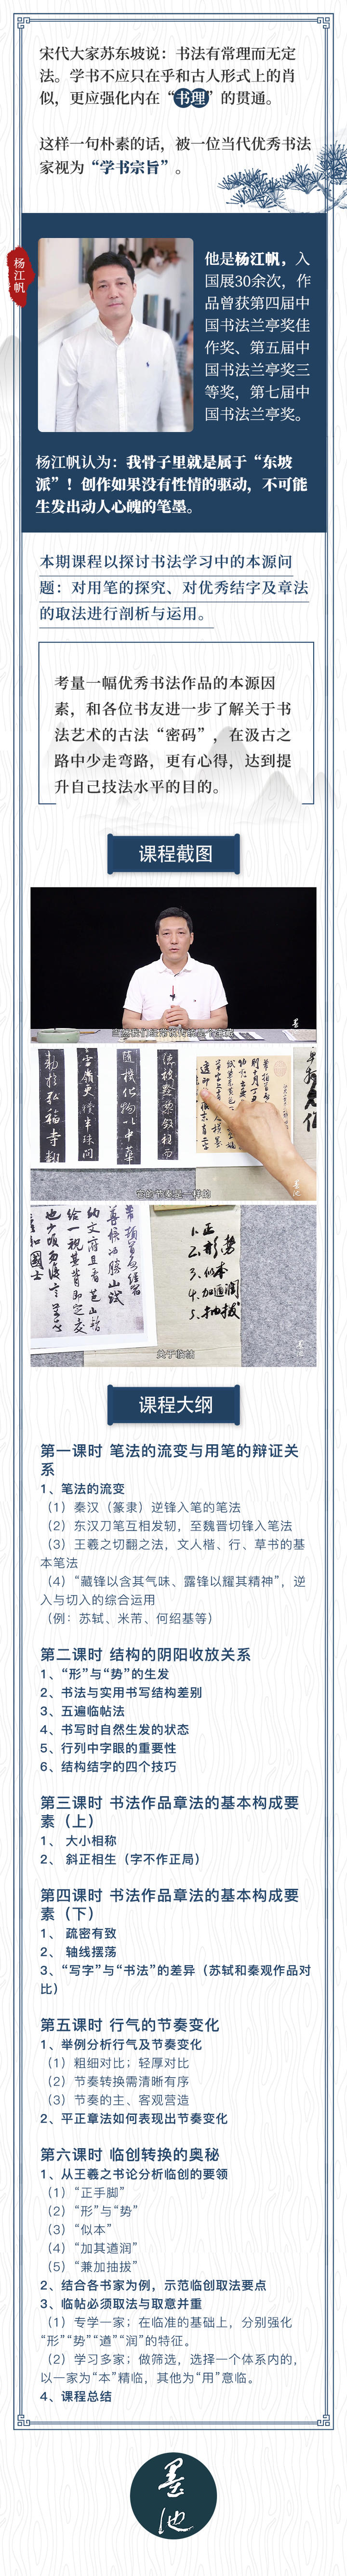 宋代大家苏东坡说：书法有常理而无定
法。学书不应只在乎和古人形式上的肖
似，更应强化内在“书理”的贯通。
这样一句朴素的话，被一位当代优秀书法
家视为“学书宗旨”。
杨江帆
他是杨江帆，入
国展30余次，作
品曾获第四届中
国书法兰亭奖佳
作奖、第五届中
国书法兰亭奖三
等奖，第七届中
国书法兰亭奖。
杨江帆认为：我骨子里就是属于“东坡
派”！创作如果没有性情的驱动，不可能
生发出动人心魄的笔墨。
本期课程以探讨书法学习中的本源问
题：对用笔的探究、对优秀结字及章法
的取法进行剖析与运用。
考量一幅优秀书法作品的本源因
素，和各位书友进一步了解关于书
法艺术的古法“密码”，在汲古之
路中少走弯路，更有心得，达到提
升自己技法水平的目的。
课程截图
它的节奏是一样的
1、正
2、形 势
3、似本
4、加遒润
5、抽拔
课程大纲
第一课时 笔法的流变与用笔的辩证关
系
1、笔法的流变
（1）秦汉（篆隶）逆锋入笔的笔法
（2）东汉刀笔互相发轫，至魏晋切锋入笔法
（3）王羲之切翻之法，文人楷、行、草书的基
本笔法
（4）“藏锋以含其气味、露锋以耀其精神”，逆
入与切入的综合运用
（例：苏轼、米芾、何绍基等）
第二课时 结构的阴阳收放关系
1、“形”与“势”的生发
2、书法与实用书写结构差别
3、五遍临帖法
4、书写时自然生发的状态
5、行列中字眼的重要性
6、结构结字的四个技巧
第三课时 书法作品章法的基本构成要
素（上）
1、 大小相称
2、 斜正相生（字不作正局）
第四课时 书法作品章法的基本构成要
素（下）
1、 疏密有致
2、 轴线摆荡
3、“写字”与“书法”的差异（苏轼和秦观作品对
比）
第五课时 行气的节奏变化
1、举例分析行气及节奏变化
（1）粗细对比；轻厚对比
（2）节奏转换需清晰有序
（3）节奏的主、客观营造
2、平正章法如何表现出节奏变化
第六课时 临创转换的奥秘
1、从王羲之书论分析临创的要领
（1）“正手脚”
（2）“形”与“势”
（3）“似本”
（4）“加其遒润”
（5）“兼加抽拔”
2、结合各书家为例，示范临创取法要点
3、临帖必须取法与取意并重
（1）专学一家；在临准的基础上，分别强化
“形”“势”“遒”“润”的特征。
（2）学习多家；做筛选，选择一个体系内的，
以一家为“本”精临，其他为“用”意临。
4、课程总结
墨池